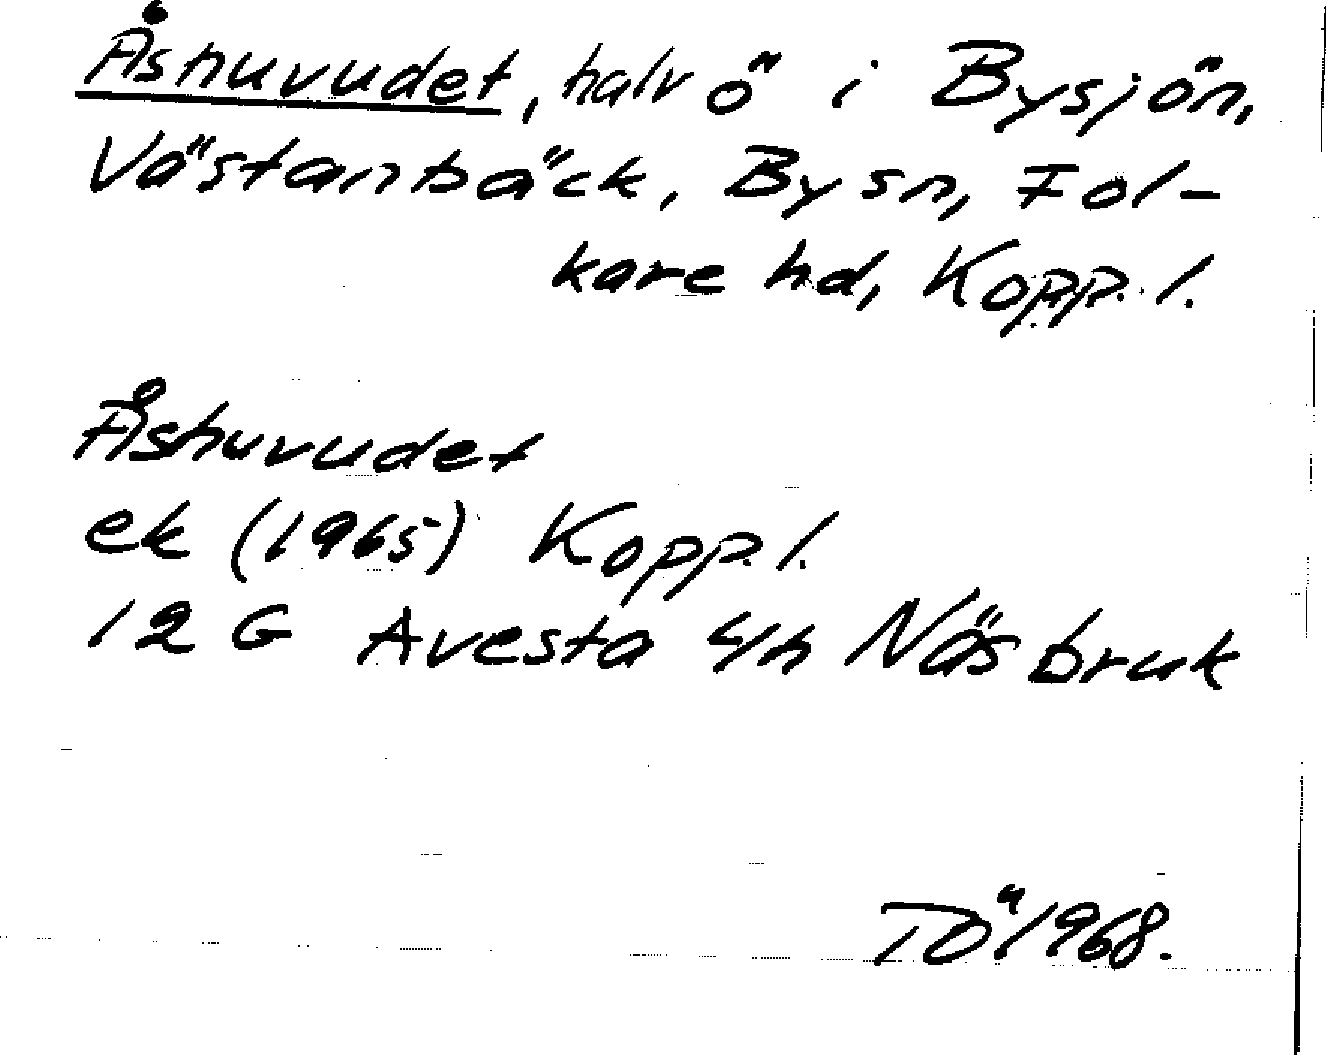 Åshuvudet, halvö i Bysjön,
Västanbäck, By sn, Fol-
kare hd, Kopp. l.
Åshuvudet
ek (1965) Kopp. l.
12 G Avesta 4h Näs bruk
TÖ 1968.